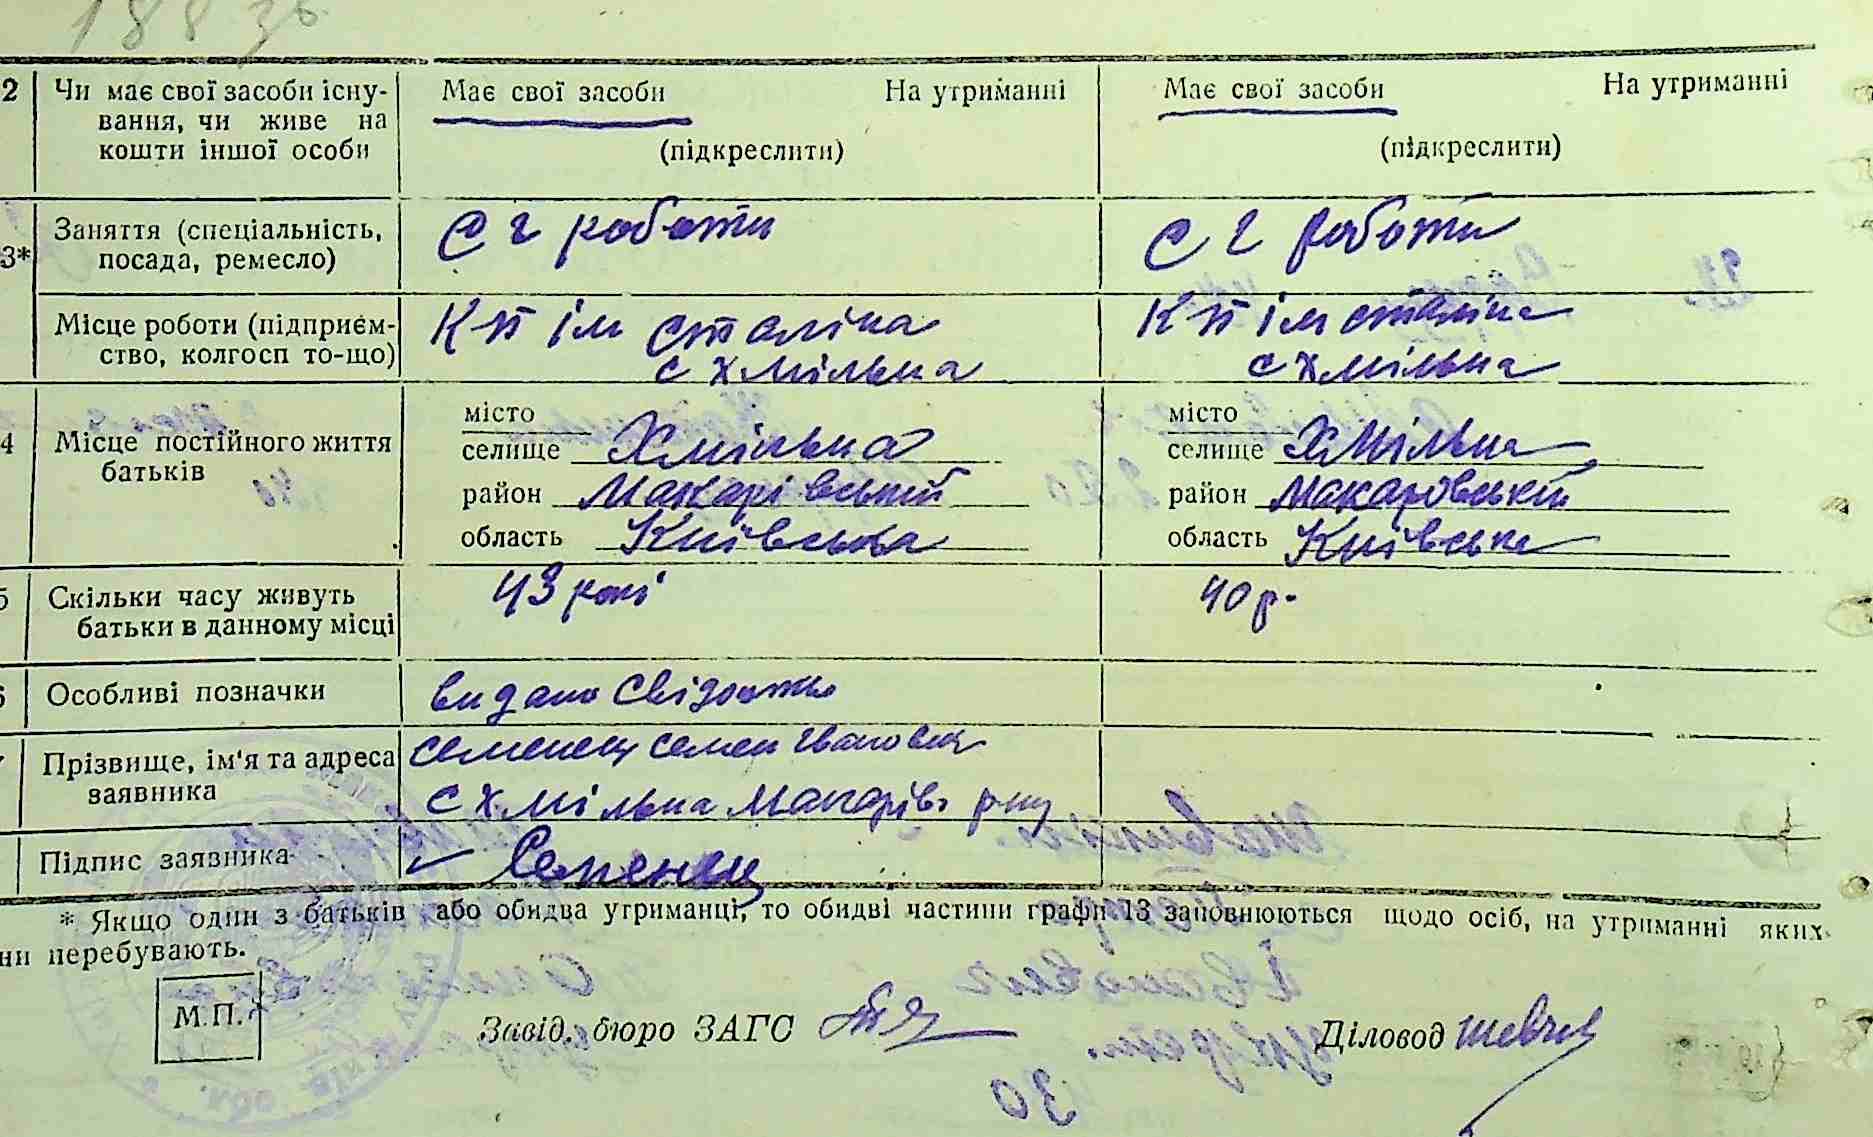 188 зв
2 Чи має свої засоби існу- Має свої засоби На утриманні Має свої засоби На утриманні
вання, чи живе на
кошти іншої особи (підкреслити) (підкреслити)
Заняття (спеціальність, С г роботи С г роботи
3* посада, ремесло)
Місце роботи (підприєм- К п ім сталіна К п ім сталіна
ство, колгосп то-що) с Хмільна с Хмільна
місто місто
4 Місце постійного життя селище Хмільна селище Хмільна
батьків район Макарівський район Макаровський
область Київська область Київська
5 Скільки часу живуть 43 рокі 40 р.
батьки в данному місці
6 Особливі позначки видано Свідоцтво
7 Прізвище, ім'я та адреса Семенец Семен Іванович
заявника с Хмільна Макарівс р-ну
Підпис заявника Семенец
* Якщо один з батьків або обидва утриманці, то обидві частини графи 13 заповнюються щодо осіб, на утриманні яких
ни перебувають.
М.П. Завід. бюро ЗАГС Діловод Шевч